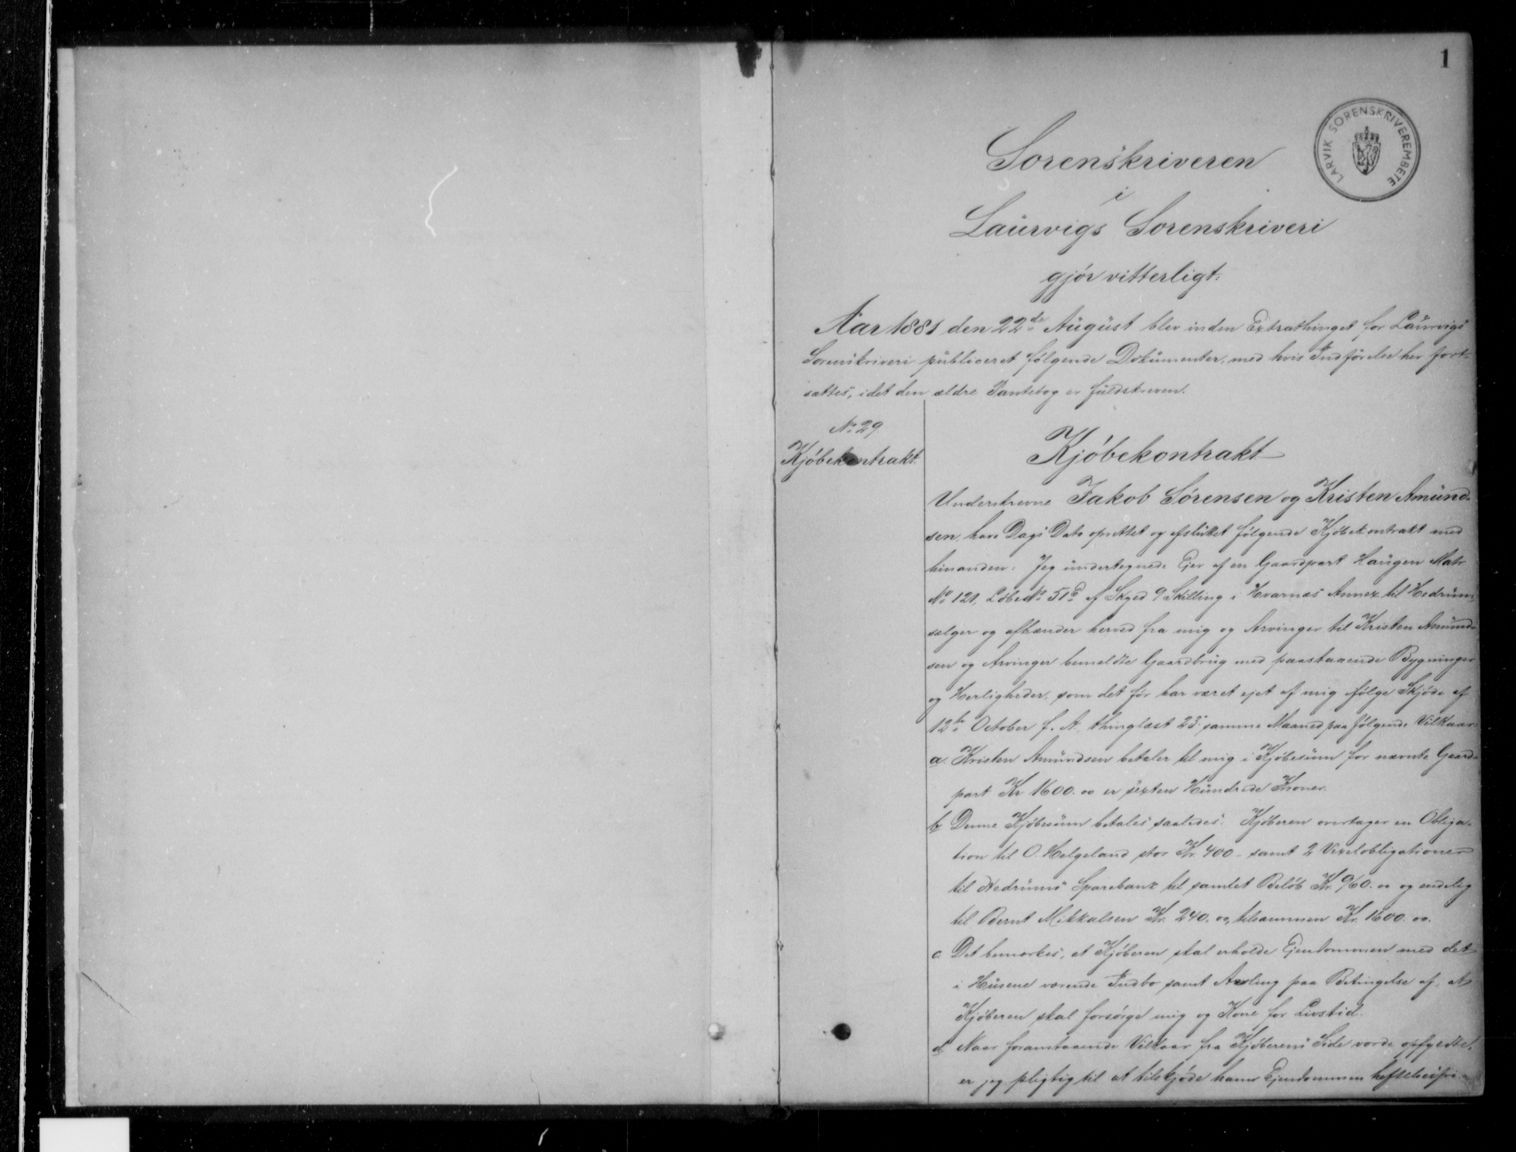 1
LARVIK SORENSKRIVEREMBETE
Sorenskriveren
i
Laurvigs Sorenskriveri
gjör vitterligt:
Aar 1881 den 22de August blev inden Extrathinget for Laurvigs
Sorenskriveri publiceret følgende Dokumenter, med hvis Indførelse her fort-
sættes, idet den ældre Pantebog er fuldskreven.
No 29
Kjøbekontrakt.
Kjøbekontrakt
Underskrevne Jakob Sørensen og Kristen Amund-
sen, have Dags Dato oprettet og afsluttet følgende Kjøbekontrakt med
hinanden: Jeg undertegnede Eier af en Gaardpart Haugen Matr
No 121, Løbe No 51d af Skyld 9 Skilling i Hvarnæs Annex til Hedrum,
sælger og afhænder herved fra mig og Arvinger til Kristen Amund-
sen og Arvinger bemeldte Gaardbrug med paastaaende Bygninger
og Herligheder, som det før har været ejet af mig ifølge Skjøde af
12te October f. A. thinglæst 23. samme Maaned paa følgende Vilkaar:
a. Kristen Amundsen betaler til mig i Kjøbesum for nævnte Gaard-
part Kr 1600.00 er sexten Hundrede Kroner.
b Denne Kjøbesum betales saaledes: Kjøberen overtager en Obliga-
tion til O. Helgeland stor Kr. 400 - samt 2 Vexelobligationer
til Hedrums Sparebank til samlet Beløb Kr. 960.00 og endelig
til Bernt Mikkalsen Kr. 240.00, tilsammen Kr. 1600.00.
c Det bemærkes, at Kjøberen skal erholde Ejendommen med det
i Husene værende Indbo samt Avling paa Betingelse af, at
Kjøberen skal forsørge mig og Kone for Livstid.
d Naar foranstaaende Vilkaar fra Kjøberens Side vorde opfyldte,
er jeg pligtig til at tilskjøde ham Ejendommen heftelsesfri